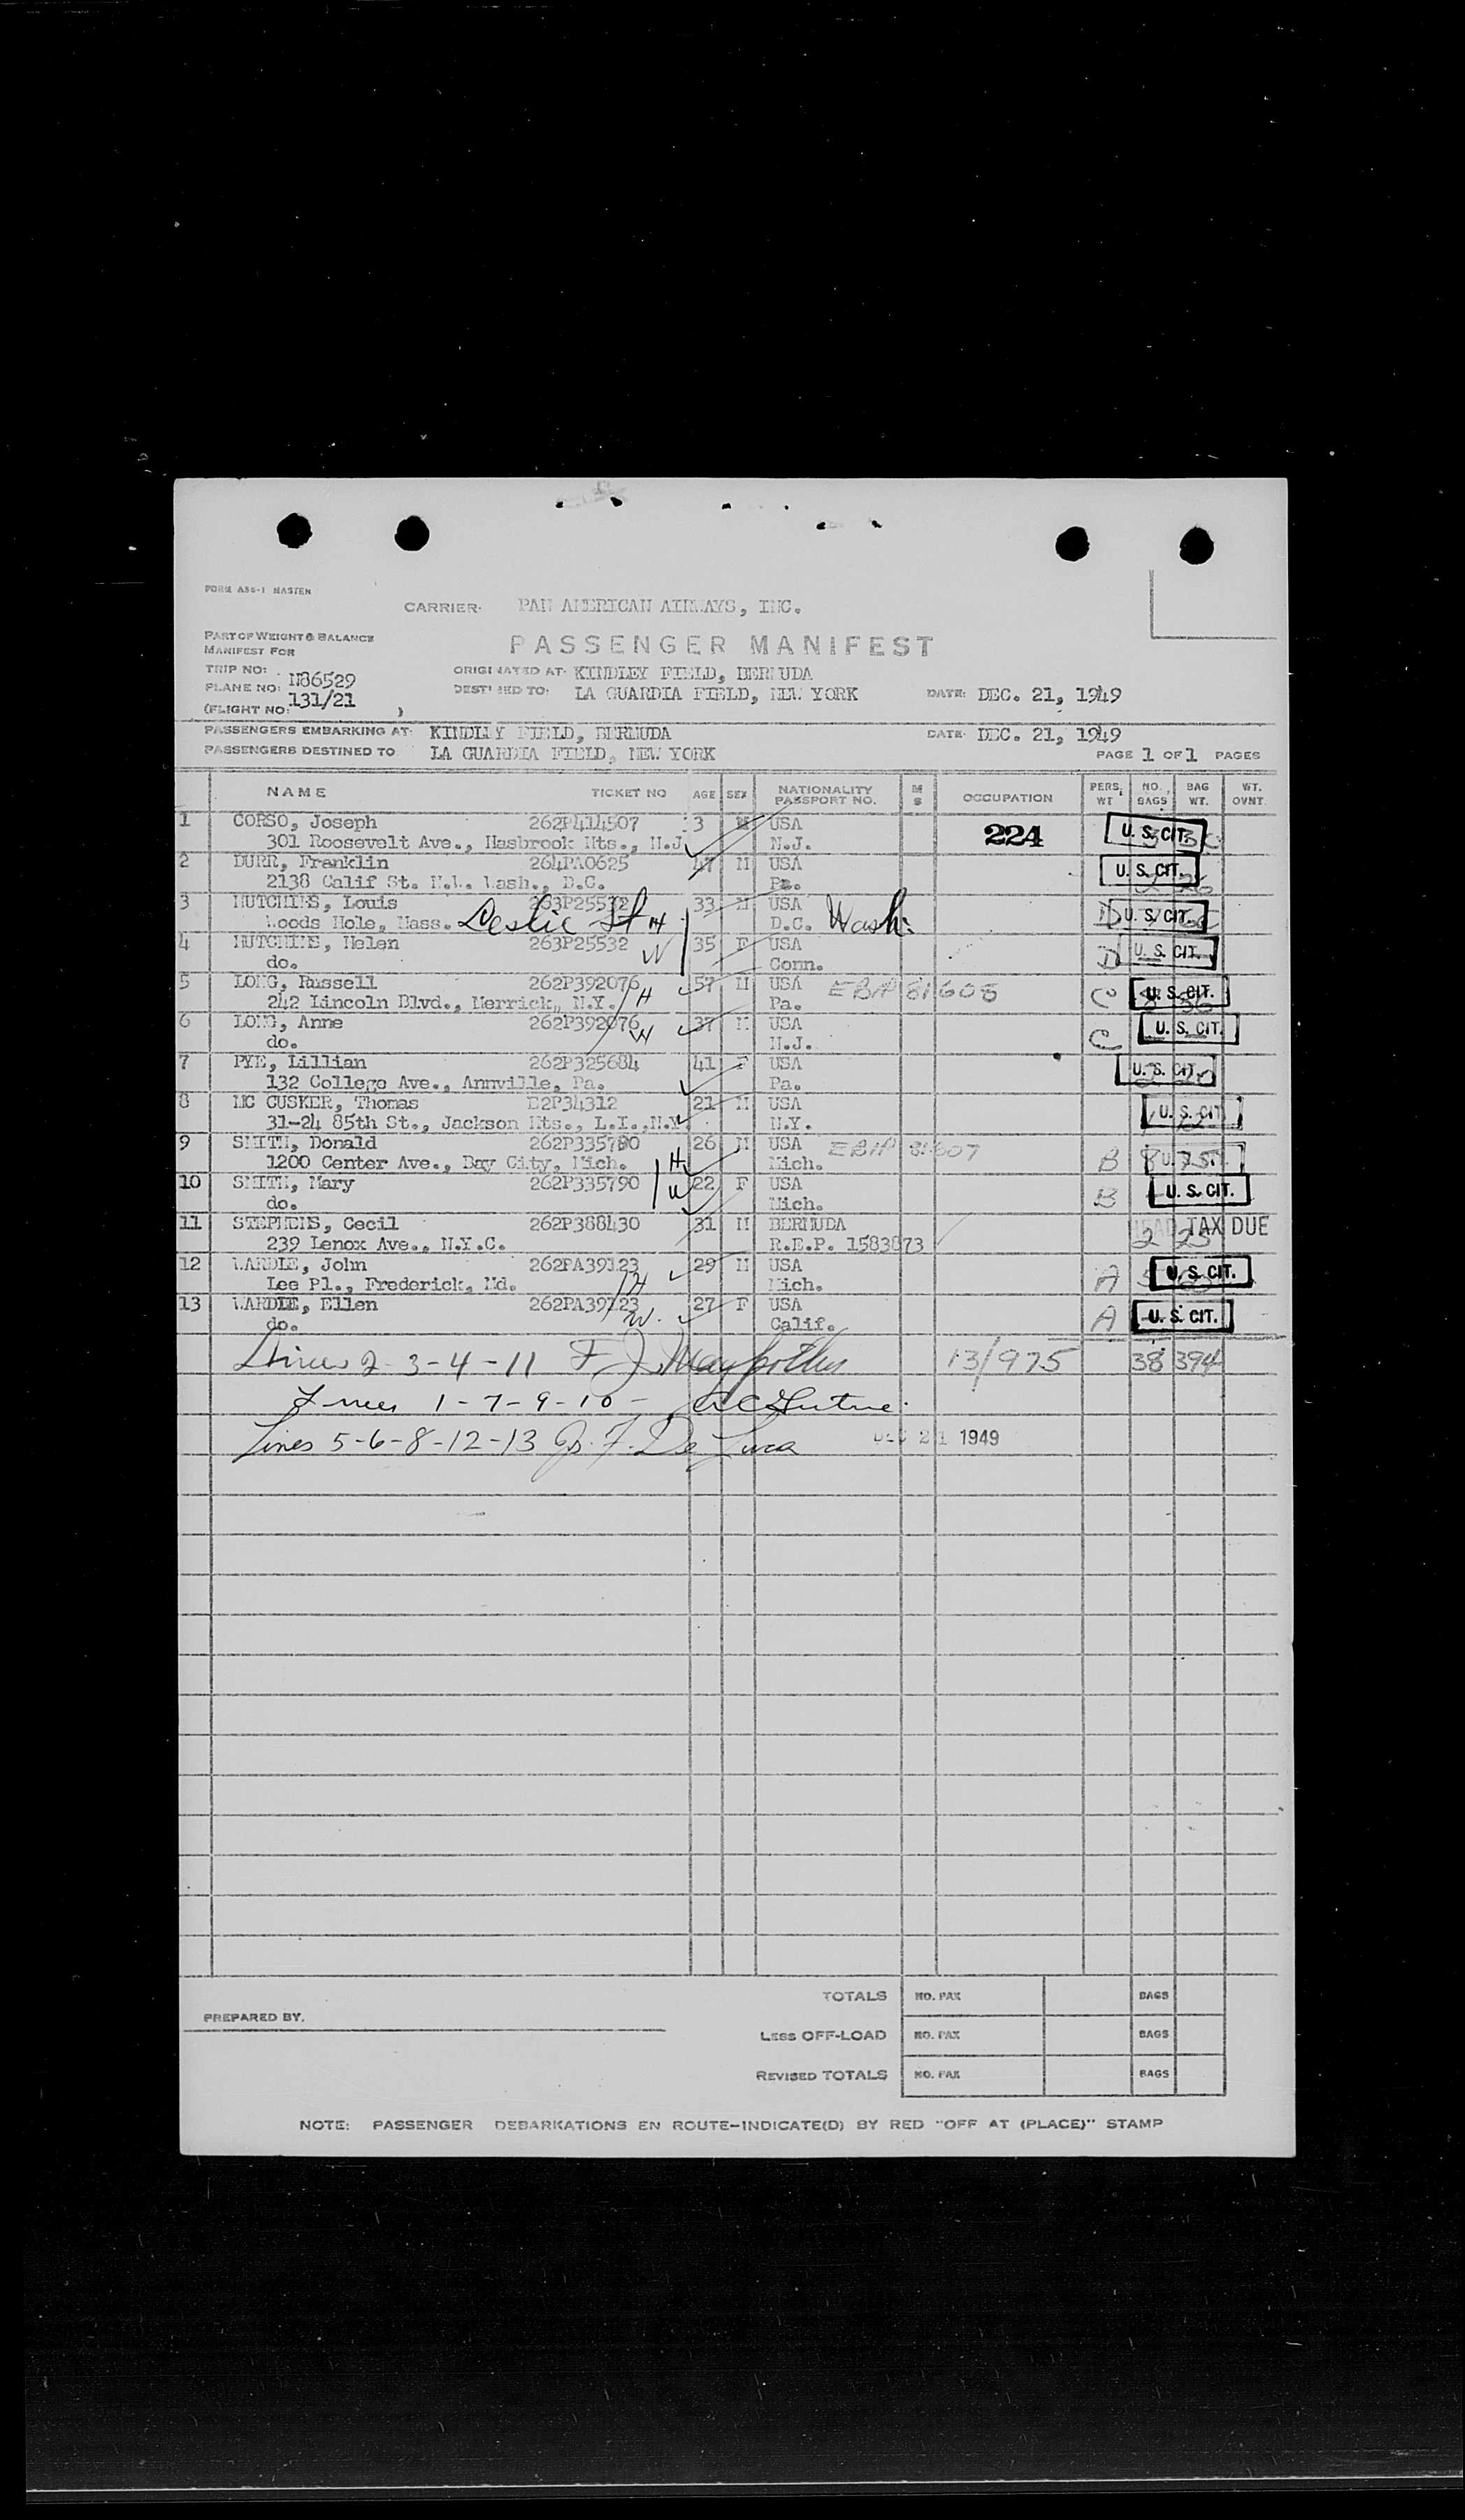 FORM A86-1 MASTER
CARRIER: PAN AMERICAN AIRWAYS, INC.
PART OF WEIGHT & BALANCE
MANIFEST FOR
PASSENGER MANIFEST
TRIP NO:
ORIGINATED AT: KINDLEY FIELD, BERMUDA
PLANE NO: N86529
DESTINED TO: LA GUARDIA FIELD, NEW YORK DATE: DEC. 21, 1949
(FLIGHT NO: 131/21 )
PASSENGERS EMBARKING AT: KINDLEY FIELD, BERMUDA DATE: DEC. 21, 1949
PASSENGERS DESTINED TO LA GUARDIA FIELD, NEW YORK PAGE 1 OF 1 PAGES
NAME TICKET NO AGE SEX NATIONALITY PASSPORT NO. M S OCCUPATION PERS. WT NO. BAGS BAG WT. WT. OVNT.
1 CORSO, Joseph 262P414507 3 M USA 224 U. S. CIT.
301 Roosevelt Ave., Hasbrook Hts., N.J. N.J.
2 DURR, Franklin 264PA0625 47 M USA U. S. CIT.
2138 Calif St. N.W. Wash., D.C. Pa.
3 HUTCHINS, Louis 263P25532 33 M USA D U. S. CIT.
Woods Hole, Mass. Leslie St H D.C. Wash.
4 HUTCHINS, Helen 263P25532 W 35 F USA D U. S. CIT.
do. Conn.
5 LONG, Russell 262P392076 57 M USA EBIP 81608 C U. S. CIT.
242 Lincoln Blvd., Merrick, N.Y. H Pa.
6 LONG, Anne 262P392076 W 37 USA C U. S. CIT.
do. N.J.
7 PYE, Lillian 262P325684 41 F USA U. S. CIT.
132 College Ave., Annville, Pa. Pa.
8 MC CUSKER, Thomas 21 M USA U. S. CIT.
31-24 85th St., Jackson Hts., L.I.,N.Y. N.Y.
9 SMITH, Donald 262P335790 26 M USA EBIP 81607 B
1200 Center Ave., Bay City, Mich. H Mich.
10 SMITH, Mary 262P335790 W 22 F USA B U. S. CIT.
do. Mich.
11 STEPHENS, Cecil 262P388430 31 M BERMUDA HEAD TAX DUE
239 Lenox Ave., N.Y.C. R.E.P. 1583873 2 25
12 WARDLE, John 262PA39123 29 M USA A U. S. CIT.
Lee Pl., Frederick, Md. H Mich.
13 WARDLE, Ellen 262PA39123 W. 27 F USA A U. S. CIT.
do. Calif.
Lines 2-3-4-11 F. J. 13/975 38 394
Lines 1-7-9-10 -
Lines 5-6-8-12-13 F. De Luca DEC 21 1949
TOTALS NO. PAX BAGS
PREPARED BY.
LESS OFF-LOAD NO. PAX BAGS
REVISED TOTALS NO. PAX BAGS
NOTE: PASSENGER DEBARKATIONS EN ROUTE-INDICATE(D) BY RED "OFF AT (PLACE)" STAMP